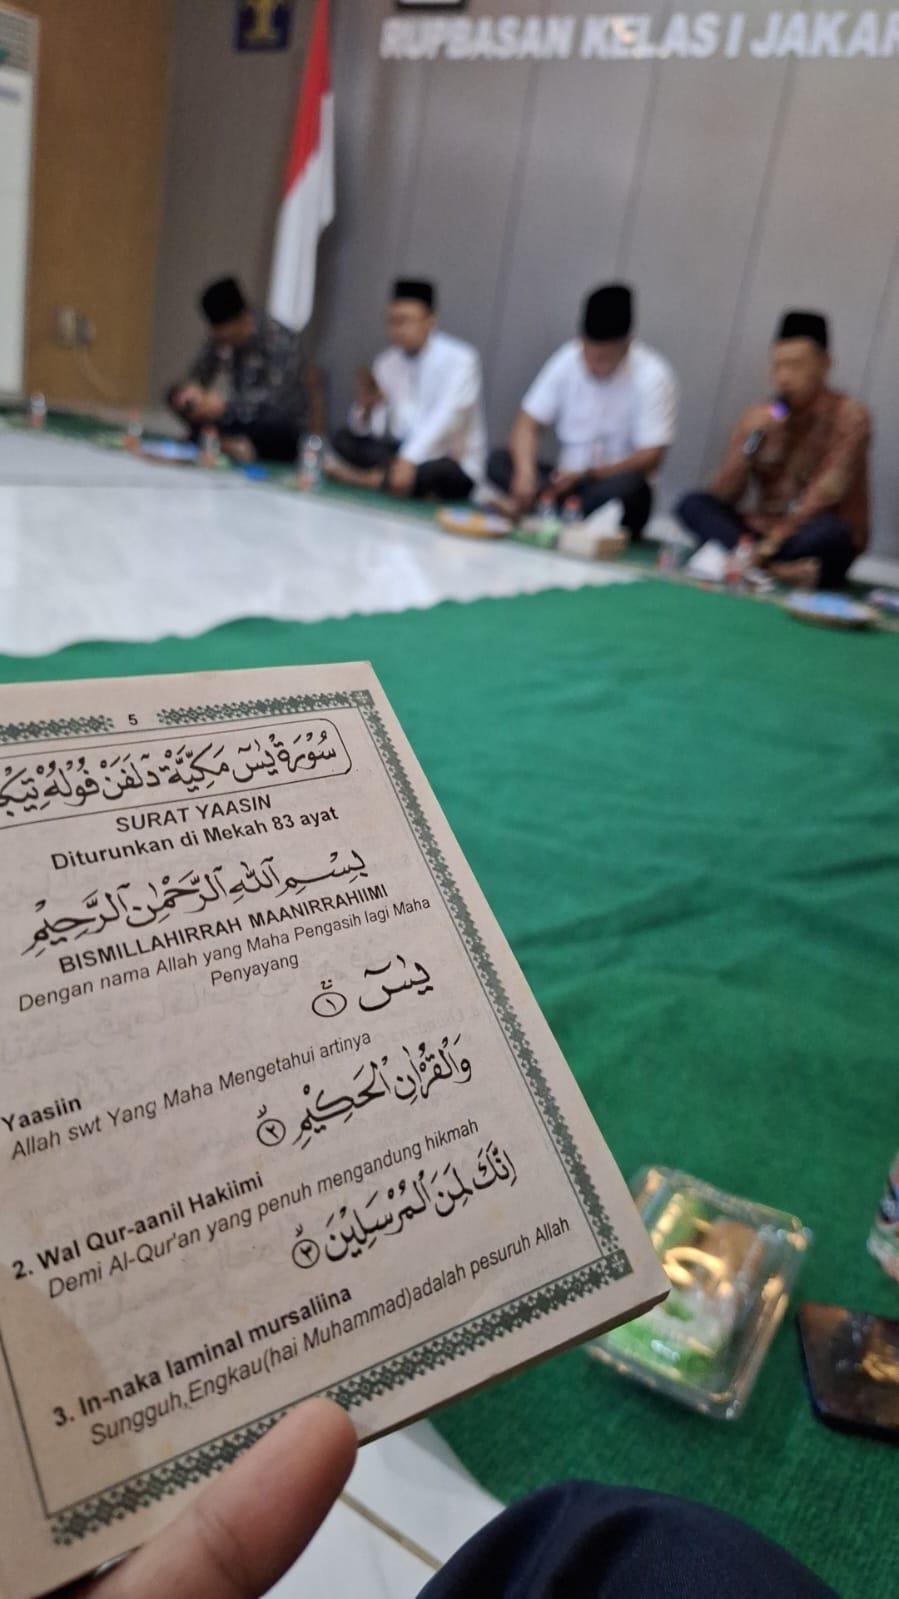 RUPBASAN KELAS I JAKAR
5
سُوْرَةُ يٰسٓ مَكِّيَّةٌ
SURAT YAASIN
Diturunkan di Mekah 83 ayat
بِسْمِ اللّٰهِ الرَّحْمٰنِ الرَّحِيْمِ
BISMILLAHIRRAH MAANIRRAHIIMI
Dengan nama Allah yang Maha Pengasih lagi Maha
Penyayang
يٰسٓ ۚ ١
Yaasiin
Allah swt Yang Maha Mengetahui artinya
وَالْقُرْاٰنِ الْحَكِيْمِ ۙ ٢
2. Wal Qur-aanil Hakiimi
Demi Al-Qur'an yang penuh mengandung hikmah
اِنَّكَ لَمِنَ الْمُرْسَلِيْنَ ۙ ٣
3. In-naka laminal mursaliina
Sungguh,Engkau(hai Muhammad)adalah pesuruh Allah